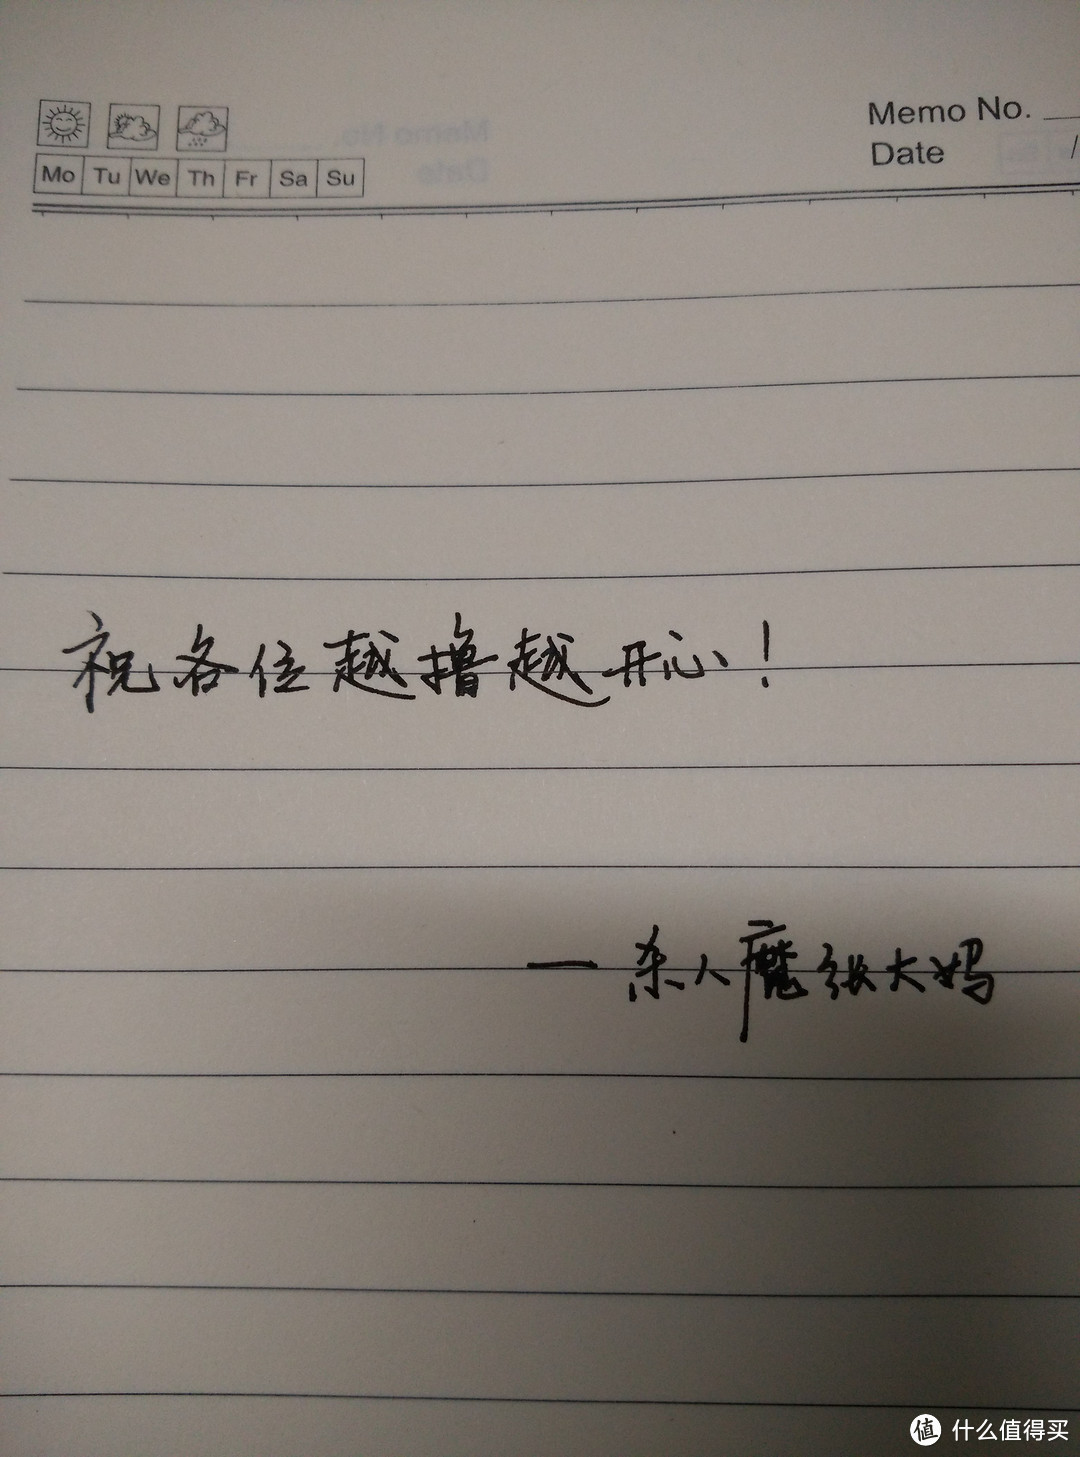 Memo No.
Date /
Mo Tu We Th Fr Sa Su
祝各位越撸越开心!
—杀人魔张大妈
值 什么值得买